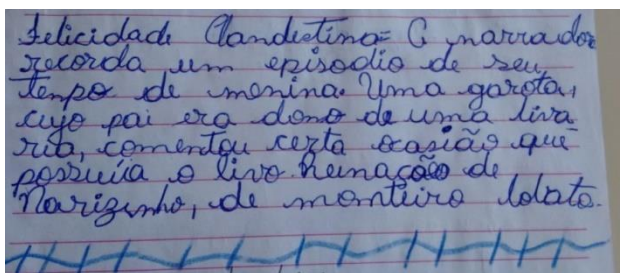 Felicidade Clandestina= A narrador
recorda um episodio de seu
tempo de menina. Uma garota,
cujo pai era dono de uma liva
ria, comentou certa ocasião que
possuía o livo Reinação de
Narizinho, de monteiro lobato.